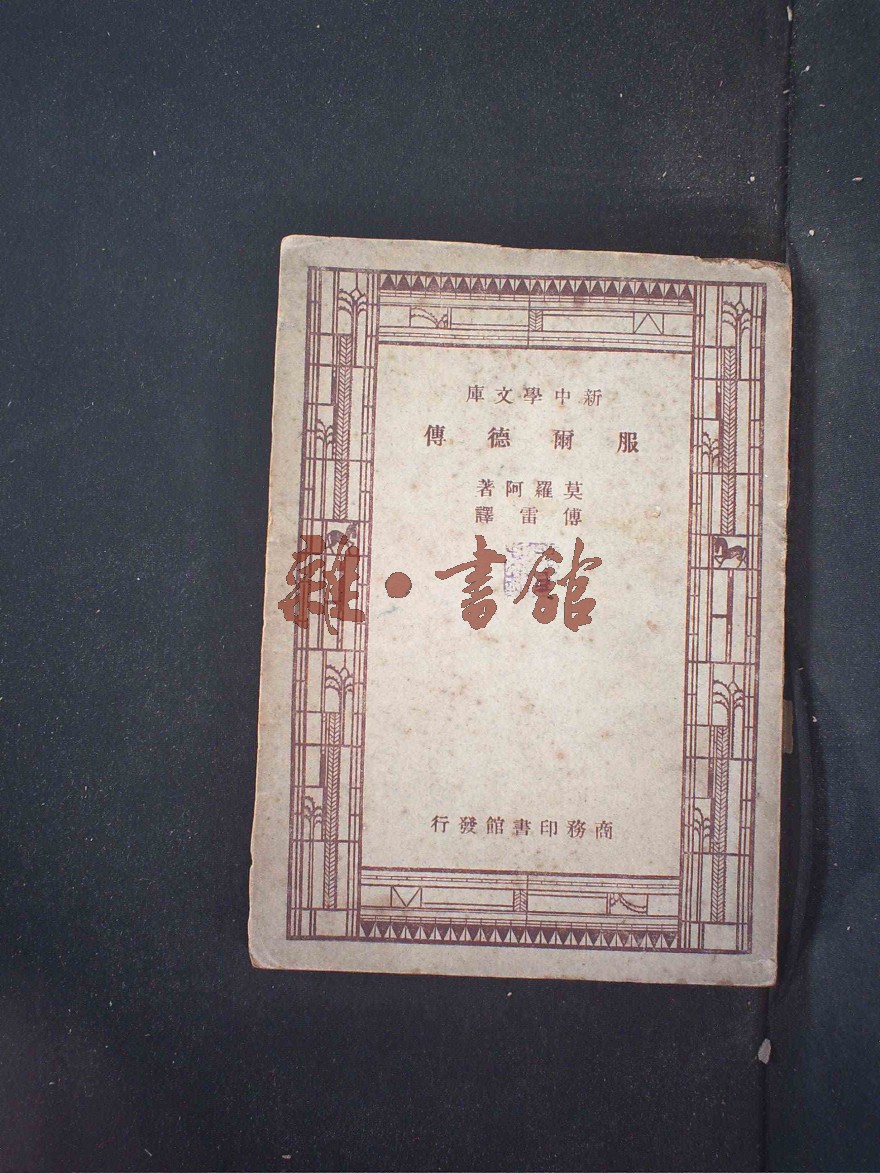 新中學文庫
服爾德傳
莫羅阿著
傅雷譯
雜·書館
商務印書館發行